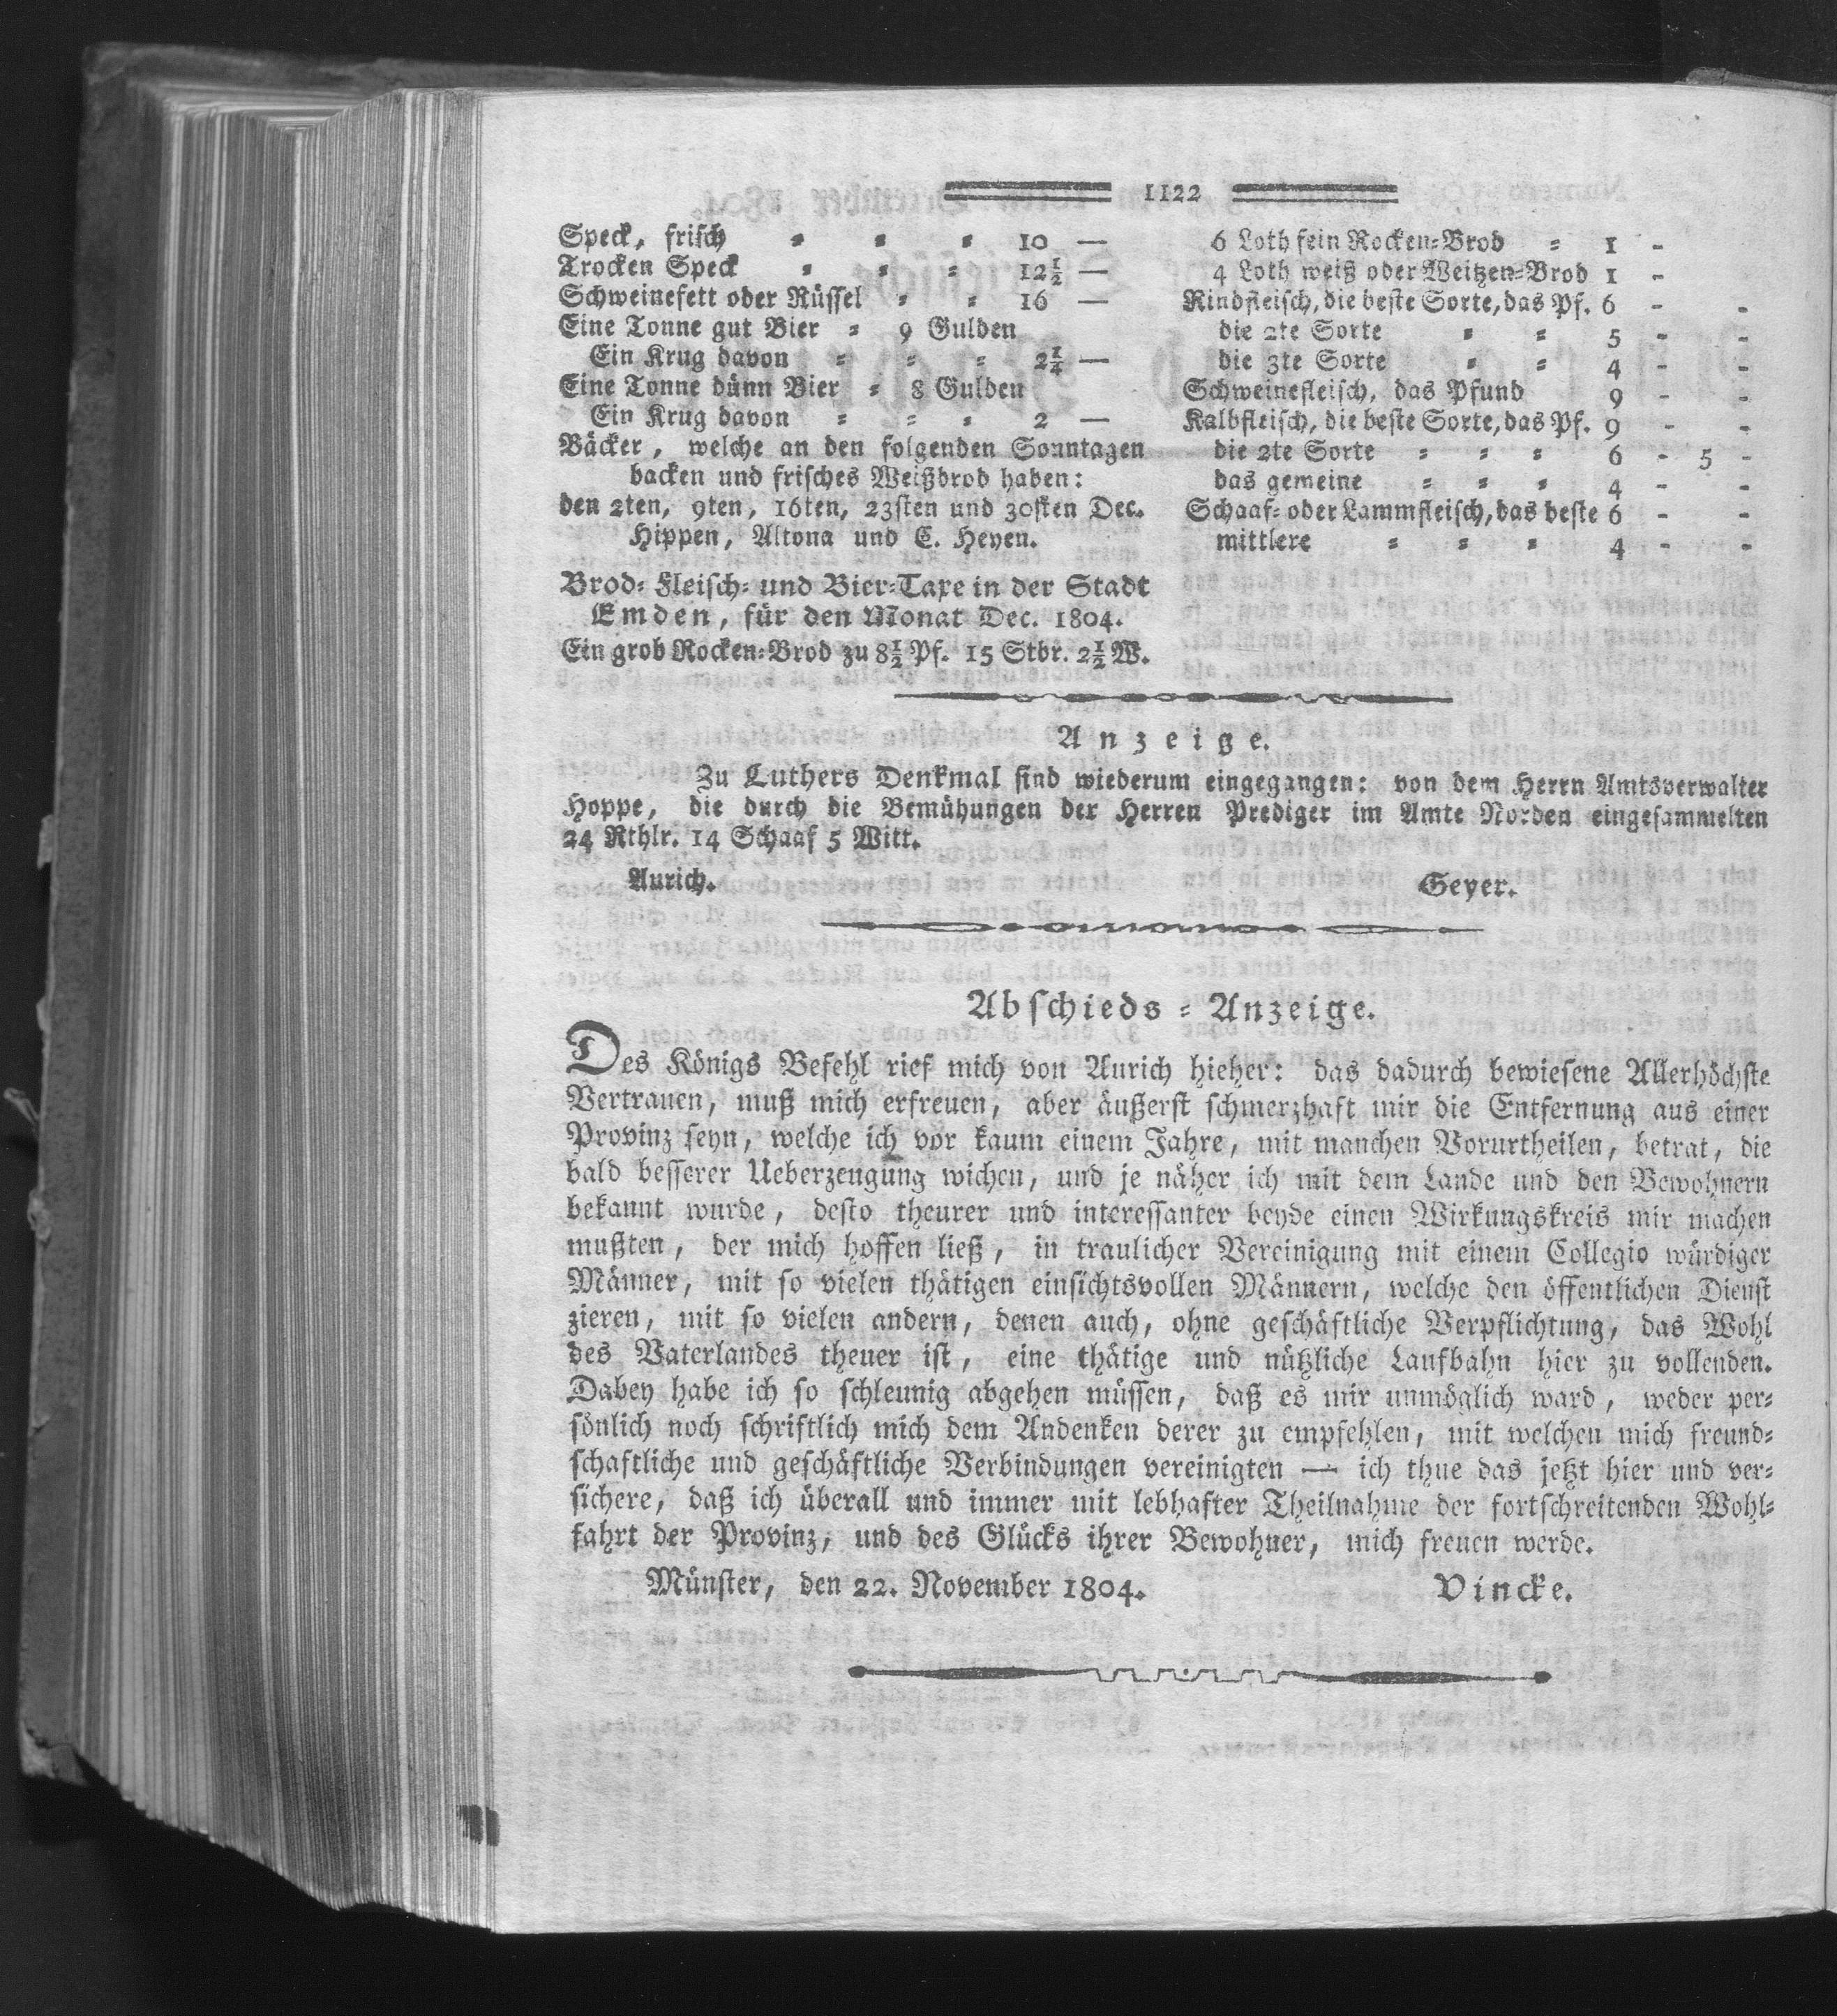 1122
Speck, frisch = = = 10 —
Trocken Speck = = = 12½ —
Schweinefett oder Rüssel = = 16 —
Eine Tonne gut Bier = 9 Gulden
Ein Krug davon = = = 2¼ —
Eine Tonne dünn Bier = 8 Gulden
Ein Krug davon = = = 2 —
Bäcker, welche an den folgenden Sonntagen
backen und frisches Weißbrod haben:
den 2ten, 9ten, 16ten, 23sten und 30sten Dec.
Hippen, Altona und E. Heyen.
Brod= Fleisch= und Bier=Taxe in der Stadt
Emden, für den Monat Dec. 1804.
Ein grob Rocken=Brod zu 8½ Pf. 15 Stbr. 2½ W.
6 Loth fein Rocken=Brod = 1 -
4 Loth weiß oder Weitzen=Brod 1 -
Rindfleisch, die beste Sorte, das Pf. 6 - -
die 2te Sorte = = 5 - -
die 3te Sorte = = 4 - -
Schweinefleisch, das Pfund 9 - -
Kalbfleisch, die beste Sorte, das Pf. 9 - -
die 2te Sorte = = = 6 - 5 -
das gemeine = = = 4 - -
Schaaf= oder Lammfleisch, das beste 6 - -
mittlere = = = 4 - -
Anzeige.
Zu Luthers Denkmal sind wiederum eingegangen: von dem Herrn Amtsverwalter
Hoppe, die durch die Bemühungen der Herren Prediger im Amte Norden eingesammelten
24 Rthlr. 14 Schaaf 5 Witt.
Aurich. Geyer.
Abschieds=Anzeige.
Des Königs Befehl rief mich von Aurich hieher: das dadurch bewiesene Allerhöchste
Vertrauen, muß mich erfreuen, aber äußerst schmerzhaft mir die Entfernung aus einer
Provinz seyn, welche ich vor kaum einem Jahre, mit manchen Vorurtheilen, betrat, die
bald besserer Ueberzeugung wichen, und je näher ich mit dem Lande und den Bewohnern
bekannt wurde, desto theurer und interessanter beyde einen Wirkungskreis mir machen
mußten, der mich hoffen ließ, in traulicher Vereinigung mit einem Collegio würdiger
Männer, mit so vielen thätigen einsichtsvollen Männern, welche den öffentlichen Dienst
zieren, mit so vielen andern, denen auch, ohne geschäftliche Verpflichtung, das Wohl
des Vaterlandes theuer ist, eine thätige und nützliche Laufbahn hier zu vollenden.
Dabey habe ich so schleunig abgehen müssen, daß es mir unmöglich ward, weder per=
sönlich noch schriftlich mich dem Andenken derer zu empfehlen, mit welchen mich freund=
schaftliche und geschäftliche Verbindungen vereinigten — ich thue das jetzt hier und ver=
sichere, daß ich überall und immer mit lebhafter Theilnahme der fortschreitenden Wohl=
fahrt der Provinz, und des Glücks ihrer Bewohner, mich freuen werde.
Münster, den 22. November 1804. Vincke.